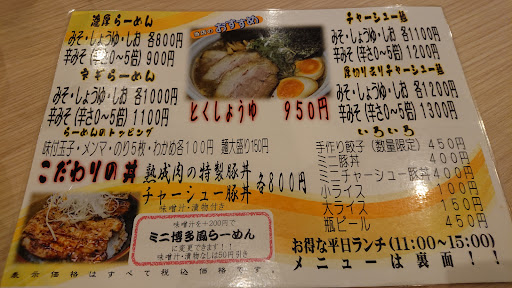 濃厚らーめん
みそ・しょうゆ・しお 各800円
辛みそ(辛さ0~5倍) 900円
ネギらーめん
みそ・しょうゆ・しお 各1000円
辛みそ(辛さ0~5倍) 1100円
らーめんのトッピング
味付玉子・メンマ・のり5枚・わかめ各100円 麺大盛り150円
おすすめ
とくしょうゆ 950円
チャーシュー麺
みそ・しょうゆ・しお 各1100円
辛みそ(辛さ0~5倍) 1200円
厚切り炙りチャーシュー麺
みそ・しょうゆ・しお 各1200円
辛みそ(辛さ0~5倍) 1300円
いろいろ
手作り餃子(数量限定) 450円
ミニ豚丼 400円
ミニチャーシュー豚丼 400円
小ライス 100円
大ライス 150円
瓶ビール 450円
こだわりの丼
熟成肉の特製豚丼
チャーシュー豚丼
各800円
味噌汁・漬物付き
味噌汁を+200円で
ミニ博多風らーめん
に変更できます!!
味噌汁・漬物なしは50円引き
お得な平日ランチ(11:00~15:00)
メニューは裏面!!
表示価格はすべて税込価格です。